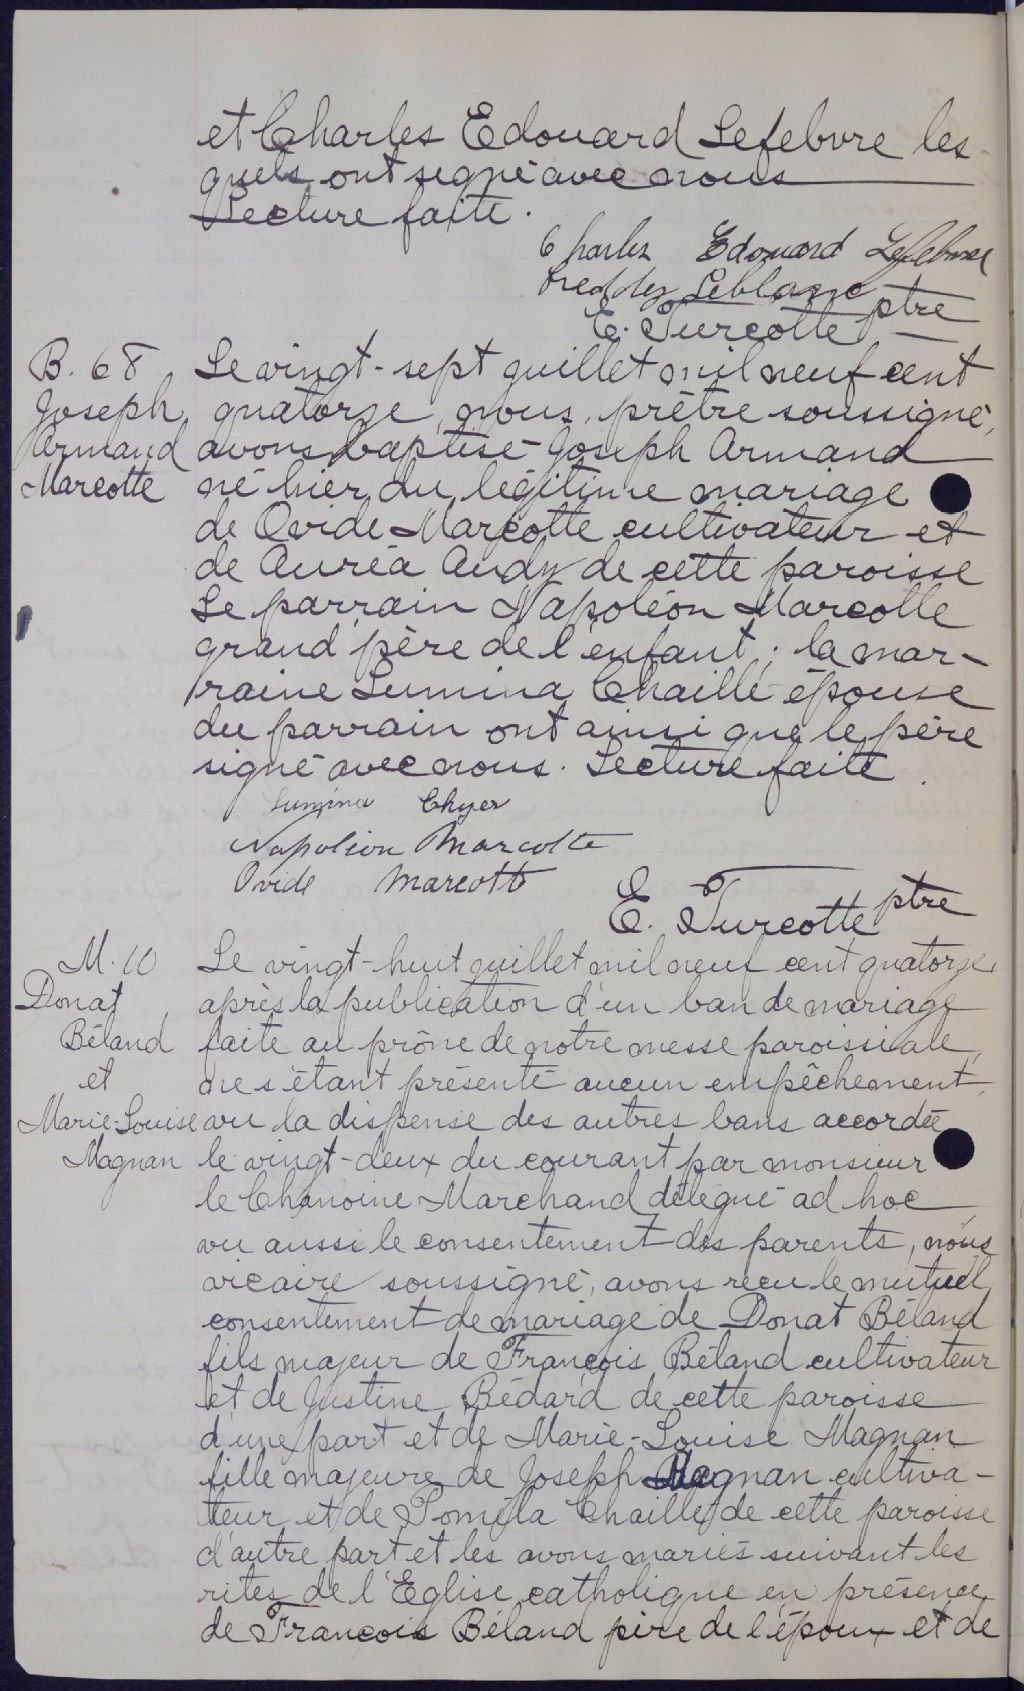 et Charles Edouard Lefebvre les-
quels ont signé avec nous
Lecture faite.
Charles Edouard Lefebvre
Freddy Leblanc
E. Turcotte ptre
B. 68
Joseph
Armand
Marcotte
Le vingt-sept juillet mil neuf cent
quatorze, nous, prêtre soussigné,
avons baptisé Joseph Armand
né hier du légitime mariage
de Ovide Marcotte cultivateur et
de Auréa Audy de cette paroisse
Le parrain Napoléon Marcotte
grand père de l'enfant; la mar-
raine Lumina Chaillé épouse
du parrain ont ainsi que le père
signé avec nous. Lecture faite
Lumina Chyer
Napoléon Marcotte
Ovide Marcotte
E. Turcotte ptre
M. 10
Donat
Béland
et
Marie-Louise
Magnan
Le vingt-huit juillet mil neuf cent quatorze
après la publication d'un ban de mariage
faite au prône de notre messe paroissiale,
ne s'étant présenté aucun empêchement,
vu la dispense des autres bans accordée
le vingt-deux du courant par monsieur
le Chanoine Marchand délégué ad hoc,
vu aussi le consentement des parents, nous
vicaire soussigné, avons reçu le mutuel
consentement de mariage de Donat Béland
fils majeur de François Béland cultivateur
et de Justine Bédard de cette paroisse
d'une part et de Marie-Louise Magnan
fille majeure de Joseph Magnan cultiva-
teur et de Poméla Chaillé de cette paroisse
d'autre part et les avons mariés suivant les
rites de l'Eglise catholique en présence
de François Béland père de l'époux et de